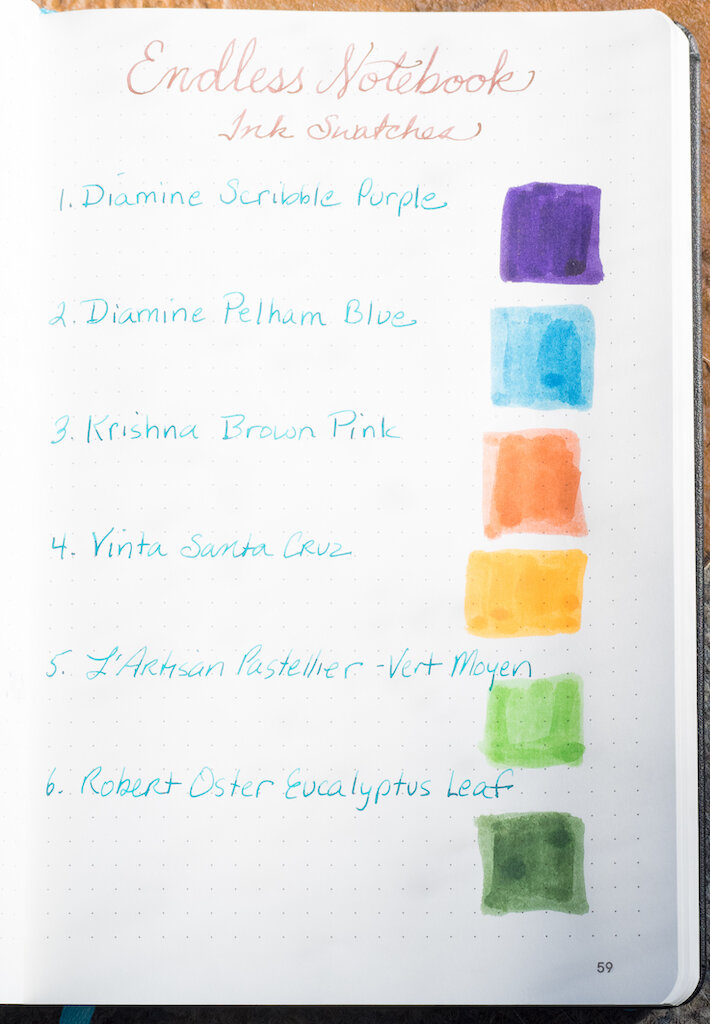 Endless Notebook
Ink Swatches
1. Diamine Scribble Purple
2. Diamine Pelham Blue
3. Krishna Brown Pink
4. Vinta Santa Cruz
5. L'Artisan Pastellier - Vert Moyen
6. Robert Oster Eucalyptus Leaf
59